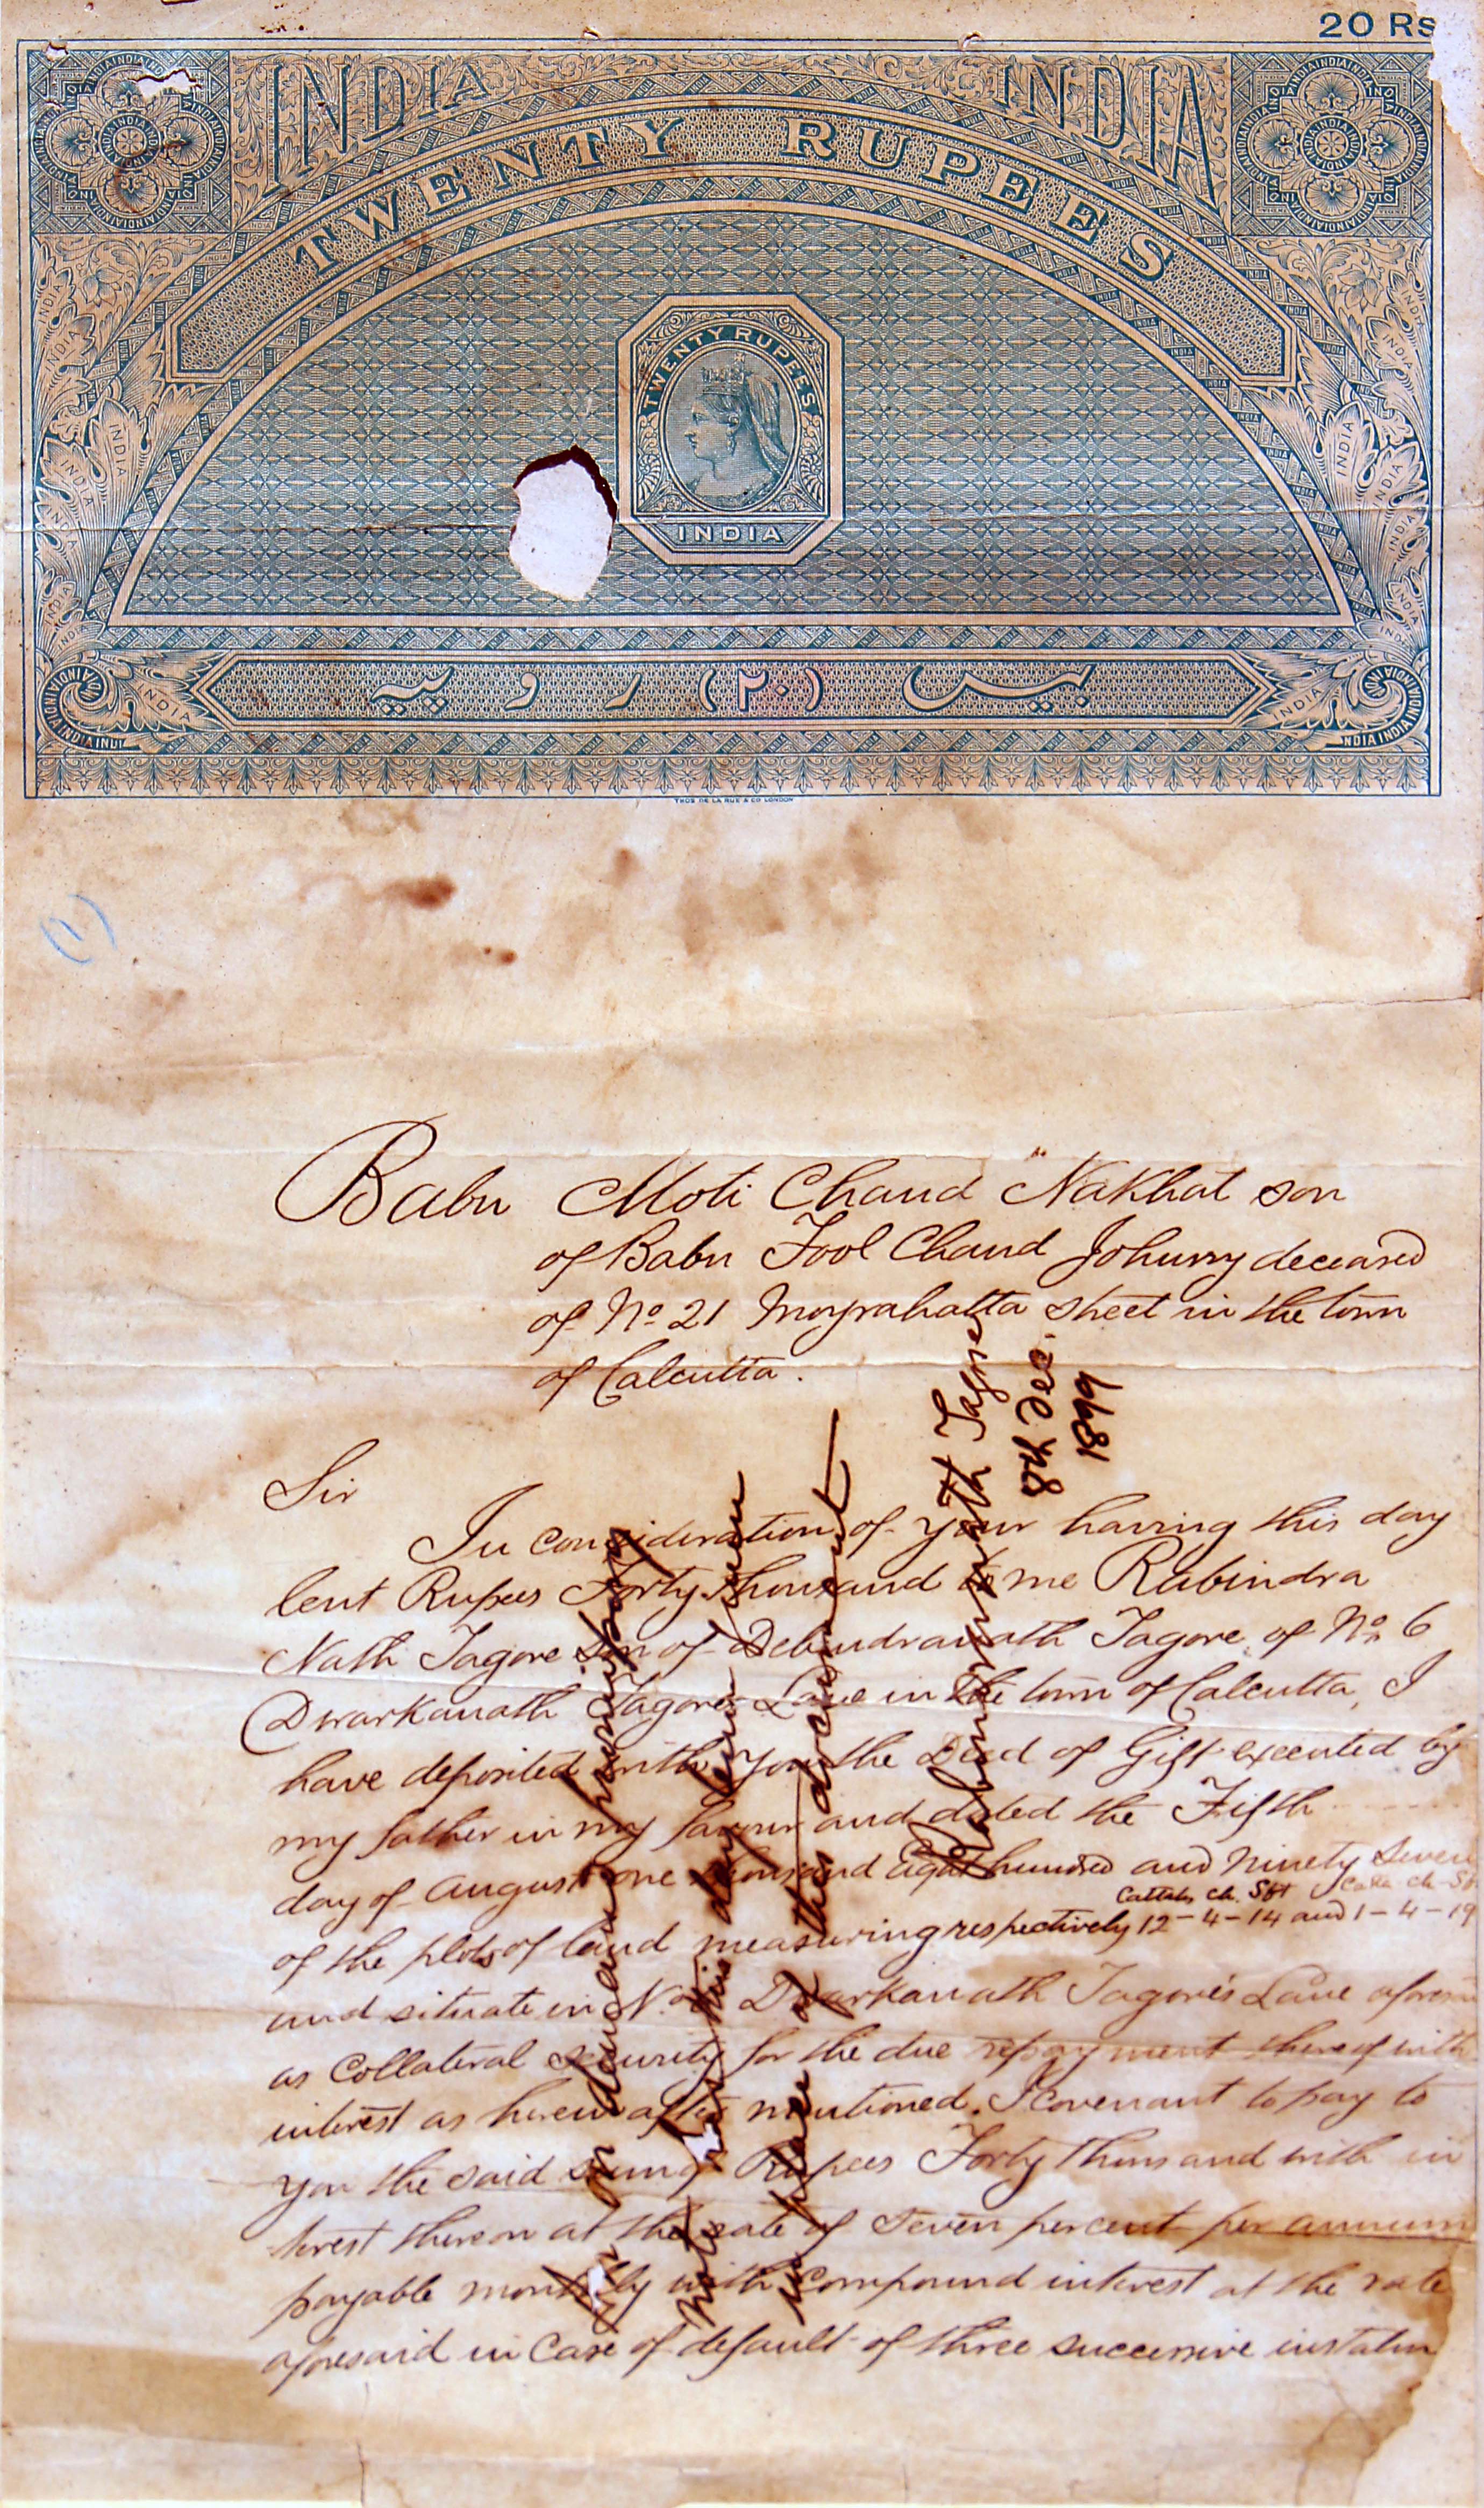 20 Rs
INDIA INDIA
TWENTY RUPEES
TWENTY RUPEES
INDIA
بیس (۲۰) روپیہ
THOS DE LA RUE & CO LONDON
(1)
Babu Moti Chand Nakhat son
of Babu Fool Chand Johurry deceased
of No 21 Moyrahatta street in the town
of Calcutta.
Sir
In consideration of your having this day
lent Rupees Forty thousand to me Rabindra
Nath Tagore son of Debendranath Tagore of No 6
Dwarkanath Tagores Lane in the town of Calcutta, I
have deposited with you the Deed of Gift executed by
my father in my favour and dated the Fifth
day of August one thousand Eight hundred and Ninety Seven
Cottah ch. Sft
of the plots of land measuring respectively 12-4-14 and 1-4-19
and situate in No. Dwarkanath Tagore's Lane afores
as Collateral security for the due repayment thereof with
interest as herein after mentioned. I covenant to pay to
you the said sum of Rupees Forty thousand with in
terest thereon at the rate of Seven percent per annum
payable monthly with Compound interest at the rate
aforesaid in Case of default of three successive instalm
demand promissory
note has this day been given
in place of this document
Rabindranath Tagore
8th Dec.
1899